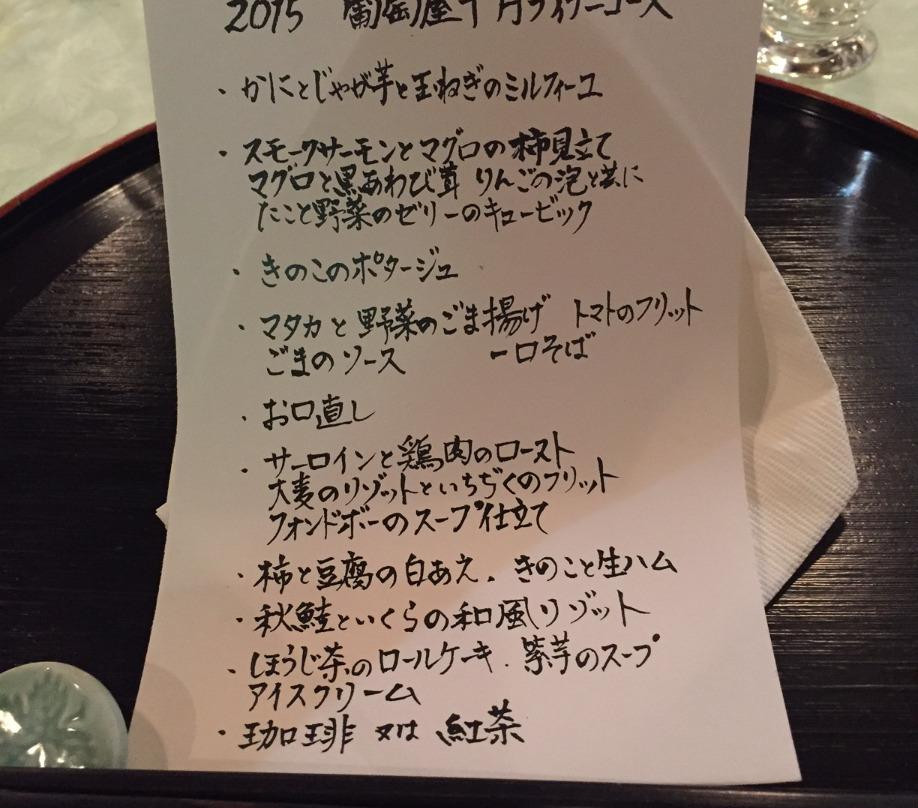 2015 葡萄屋十月ディナーコース
・かにとじゃが芋と玉ねぎのミルフィーユ
・スモークサーモンとマグロの柿見立て
マグロと黒あわび茸 りんごの泡と共に
たこと野菜のゼリーのキュービック
・きのこのポタージュ
・マタカと野菜のごま揚げ トマトのフリット
ごまのソース 一口そば
・お口直し
・サーロインと鶏肉のロースト
大麦のリゾットといちぢくのフリット
フォンドボーのスープ仕立て
・柿と豆腐の白あえ．きのこと生ハム
・秋鮭といくらの和風リゾット
・ほうじ茶のロールケーキ．紫芋のスープ
アイスクリーム
・珈琲 又は 紅茶